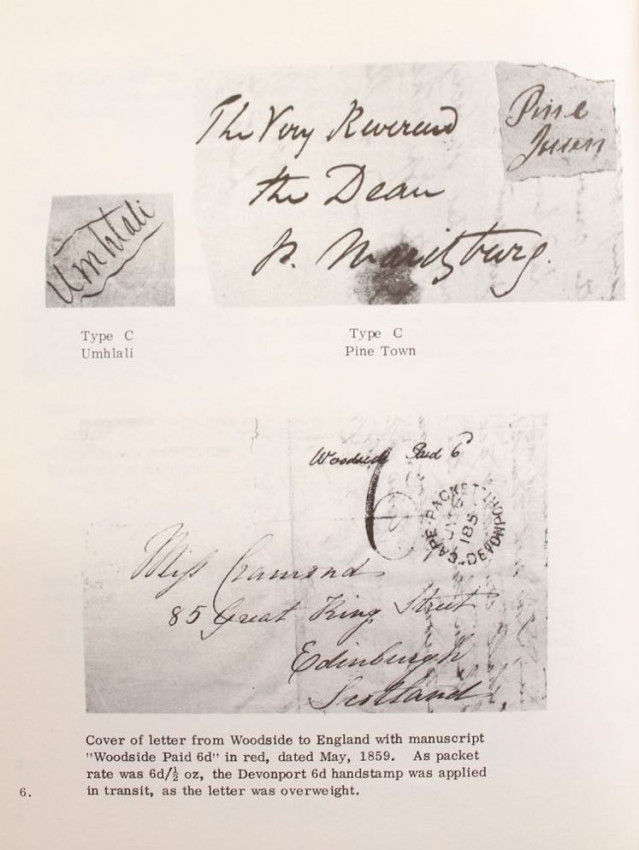 The Very Reverend
the Dean
P. Maritzburg.
Pine
Town
Umhlali
Type C
Umhlali
Type C
Pine Town
Woodside Paid 6
6
CAPE PACKET DEVONPORT
185
Miss Cramond
85 Great King Street
Edinburgh
Scotland
Cover of letter from Woodside to England with manuscript
"Woodside Paid 6d" in red, dated May, 1859. As packet
rate was 6d/½ oz, the Devonport 6d handstamp was applied
in transit, as the letter was overweight.
6.